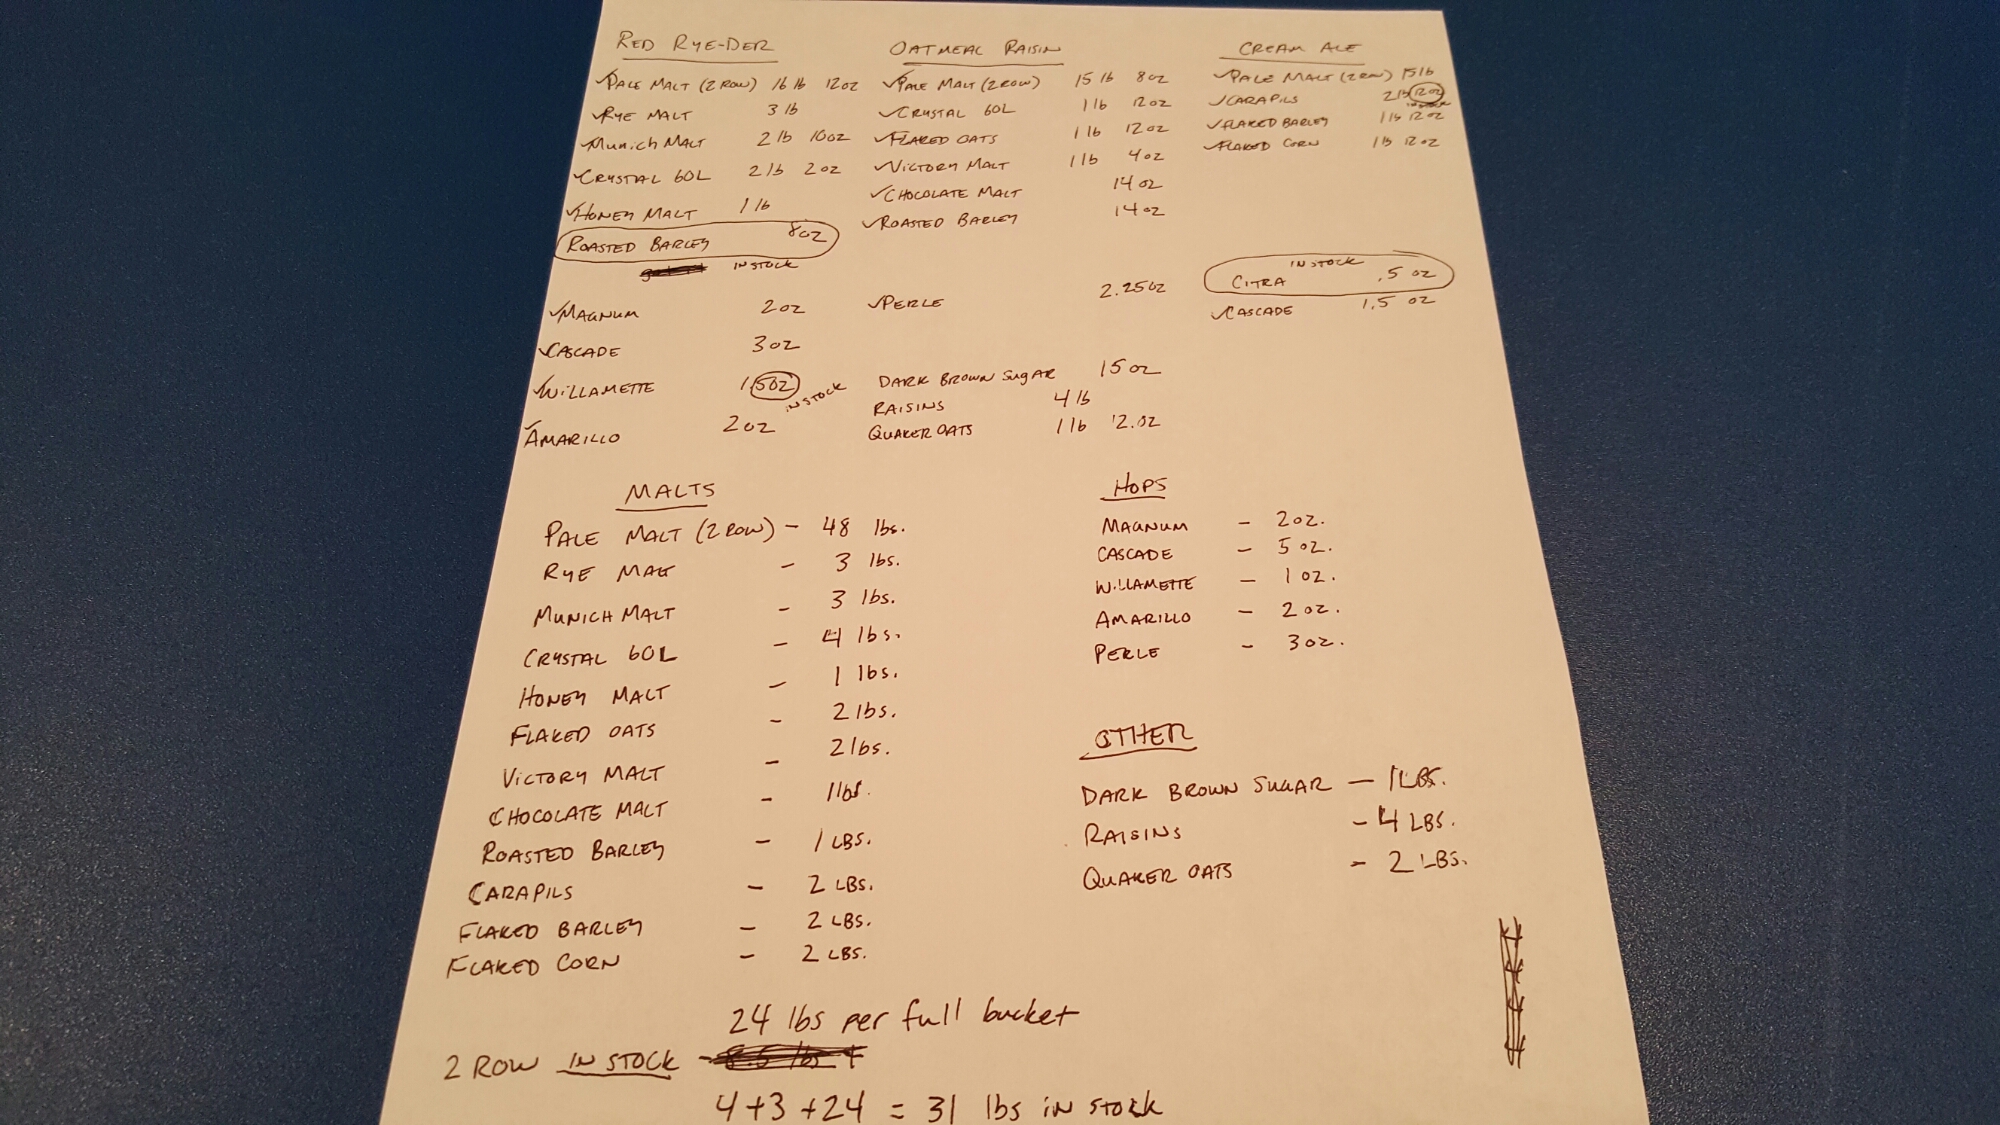 RED RYE-DER
PALE MALT (2 ROW) 16 lb 12oz
RYE MALT 3 lb
MUNICH MALT 2 lb 10oz
CRYSTAL 60L 2 lb 2oz
HONEY MALT 1 lb
ROASTED BARLEY 8oz
IN STOCK
MAGNUM 2oz
CASCADE 3oz
WILLAMETTE 1.5oz IN STOCK
AMARILLO 2oz
OATMEAL RAISIN
PALE MALT (2 ROW) 15 lb 8oz
CRYSTAL 60L 1 lb 12oz
FLAKED OATS 1 lb 12oz
VICTORY MALT 1 lb 4oz
CHOCOLATE MALT 14oz
ROASTED BARLEY 14oz
PERLE 2.25oz
DARK BROWN SUGAR 15oz
RAISINS 4 lb
QUAKER OATS 1 lb 12.oz
CREAM ALE
PALE MALT (2 ROW) 15 lb
CARAPILS 2 lb 12oz
IN STOCK
FLAKED BARLEY 1 lb 12oz
FLAKED CORN 1 lb 12oz
IN STOCK
CITRA .5 oz
CASCADE 1.5 oz
MALTS
PALE MALT (2 ROW) - 48 lbs.
RYE MALT - 3 lbs.
MUNICH MALT - 3 lbs.
CRYSTAL 60L - 4 lbs.
HONEY MALT - 1 lbs.
FLAKED OATS - 2 lbs.
VICTORY MALT - 2 lbs.
CHOCOLATE MALT - 1 lbs.
ROASTED BARLEY - 1 LBS.
CARAPILS - 2 LBS.
FLAKED BARLEY - 2 LBS.
FLAKED CORN - 2 LBS.
HOPS
MAGNUM - 2oz.
CASCADE - 5 oz.
WILLAMETTE - 1 oz.
AMARILLO - 2 oz.
PERLE - 3 oz.
OTHER
DARK BROWN SUGAR - 1 LBS.
RAISINS - 4 LBS.
QUAKER OATS - 2 LBS.
24 lbs per full bucket
2 ROW IN STOCK
4+3+24 = 31 lbs in stock